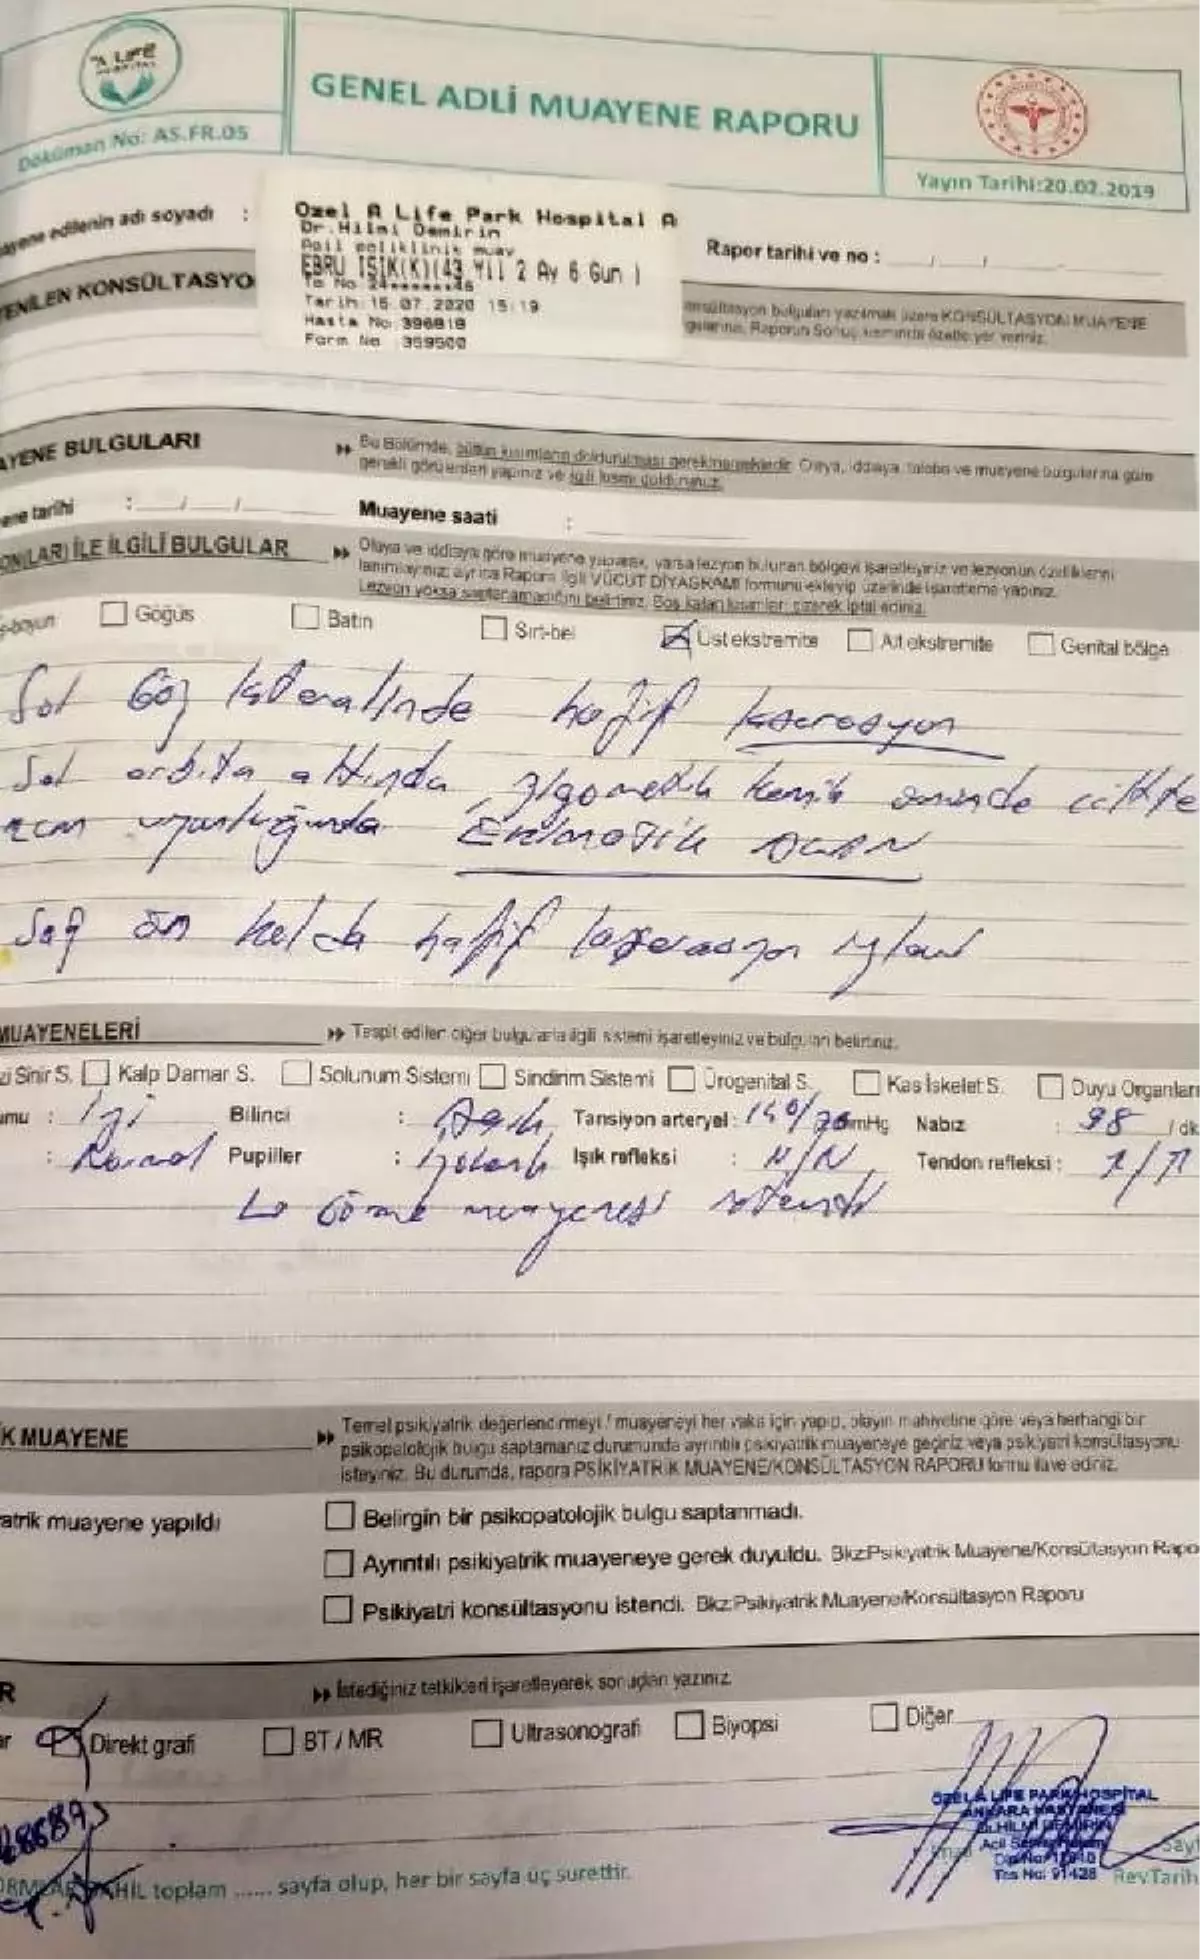 A LIFE
HOSPITAL
Doküman No: AS.FR.05
GENEL ADLİ MUAYENE RAPORU
Yayın Tarihi:20.02.2019
ayene edilenin adı soyadı :
Ozel A Life Park Hospital A
Dr.Hilmi Demirin
Acil poliklinik muay
EBRU IŞIK(K)(43 Yıl 2 Ay 6 Gun )
Tc No 24*******46
Tarih 16.07.2020 15:19
Hasta No: 396819
Form No 359500
Rapor tarihi ve no :
TENİLEN KONSÜLTASYO
onsültasyon bulguları yazılmak üzere KONSÜLTASYON MUAYENE
Raporun Sonuç kısmında özetle yer veriniz.
AYENE BULGULARI
Bu Bölümde, bütün kısımların doldurulması gerekmemektedir. Olaya, iddiaya, talebe ve muayene bulgularına göre
gerekli görülenleri yapınız ve ilgili kısmı doldurunuz.
ene tarihi : / /
Muayene saati :
ON(LAR) İLE İLGİLİ BULGULAR
Olaya ve iddiaya göre muayene yaparak, varsa lezyon bulunan bölgeyi işaretleyiniz ve lezyonun özelliklerini
tanımlayınız; ayrıca Rapora ilgili VÜCUT DİYAGRAMI formunu ekleyip üzerinde işaretleme yapınız.
Lezyon yoksa saptanamadığını belirtiniz. Boş kalan kısımları çizerek iptal ediniz.
ş-boyun Göğüs Batın Sırt-bel Üst ekstremite Alt ekstremite Genital bölge
Sol Göz lateralinde hafif laserasyon
Sol orbita altında zigomatik kemik önünde ciltte
uzunluğunda Ekimotik alan
Sağ ön kolda hafif laserasyon
MUAYENELERİ
Tespit edilen diğer bulgularla ilgili sistemi işaretleyiniz ve bulguları belirtiniz.
zi Sinir S. Kalp Damar S. Solunum Sistemi Sindirim Sistemi Ürogenital S. Kas İskelet S. Duyu Organları
umu : İyi Bilinci : Açık Tansiyon arteryel : 140/70 mmHg Nabız : 98 / dk
: Normal Pupiller : İzokorik Işık refleksi : N/N Tendon refleksi :
Görme muayenesi istendi
K MUAYENE
Temel psikiyatrik değerlendirmeyi / muayeneyi her vaka için yapıp, olayın mahiyetine göre veya herhangi bir
psikopatolojik bulgu saptamanız durumunda ayrıntılı psikiyatrik muayeneye geçiniz veya psikiyatri konsültasyonu
isteyiniz. Bu durumda, rapora PSİKİYATRİK MUAYENE/KONSÜLTASYON RAPORU formu ilave ediniz.
atrik muayene yapıldı
Belirgin bir psikopatolojik bulgu saptanmadı.
Ayrıntılı psikiyatrik muayeneye gerek duyuldu. Bkz:Psikiyatrik Muayene/Konsültasyon Rapo
Psikiyatri konsültasyonu istendi. Bkz:Psikiyatrik Muayene/Konsültasyon Raporu
R
İstediğiniz tetkikleri işaretleyerek sonuçları yazınız.
ar Direkt grafi BT / MR Ultrasonografi Biyopsi Diğer
ÖZEL A LIFE PARK HOSPİTAL
ANKARA HASTANESİ
Dr.HİLMİ DEMİRİN
Acil Servis
Tes No: 91428
Say
RevTarih
DAHİL toplam ...... sayfa olup, her bir sayfa üç surettir.